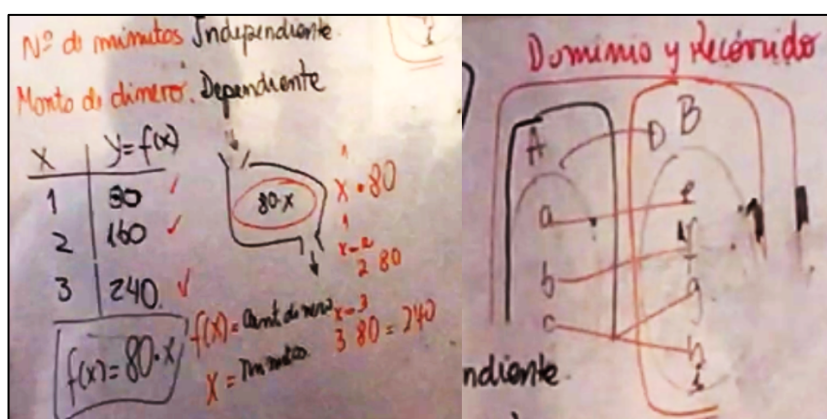 Nº de minutos Independiente.
Monto de dinero. Dependiente
x y=f(x)
1 80
2 160
3 240.
f(x)=80·x
80·x
x·80
x=2
2 80
x=3
3 80 = 240
f(x)= Cant dinero
x = minutos
Dominio y Recorrido
A
D B
a e
b f
c g
h
i
ndiente